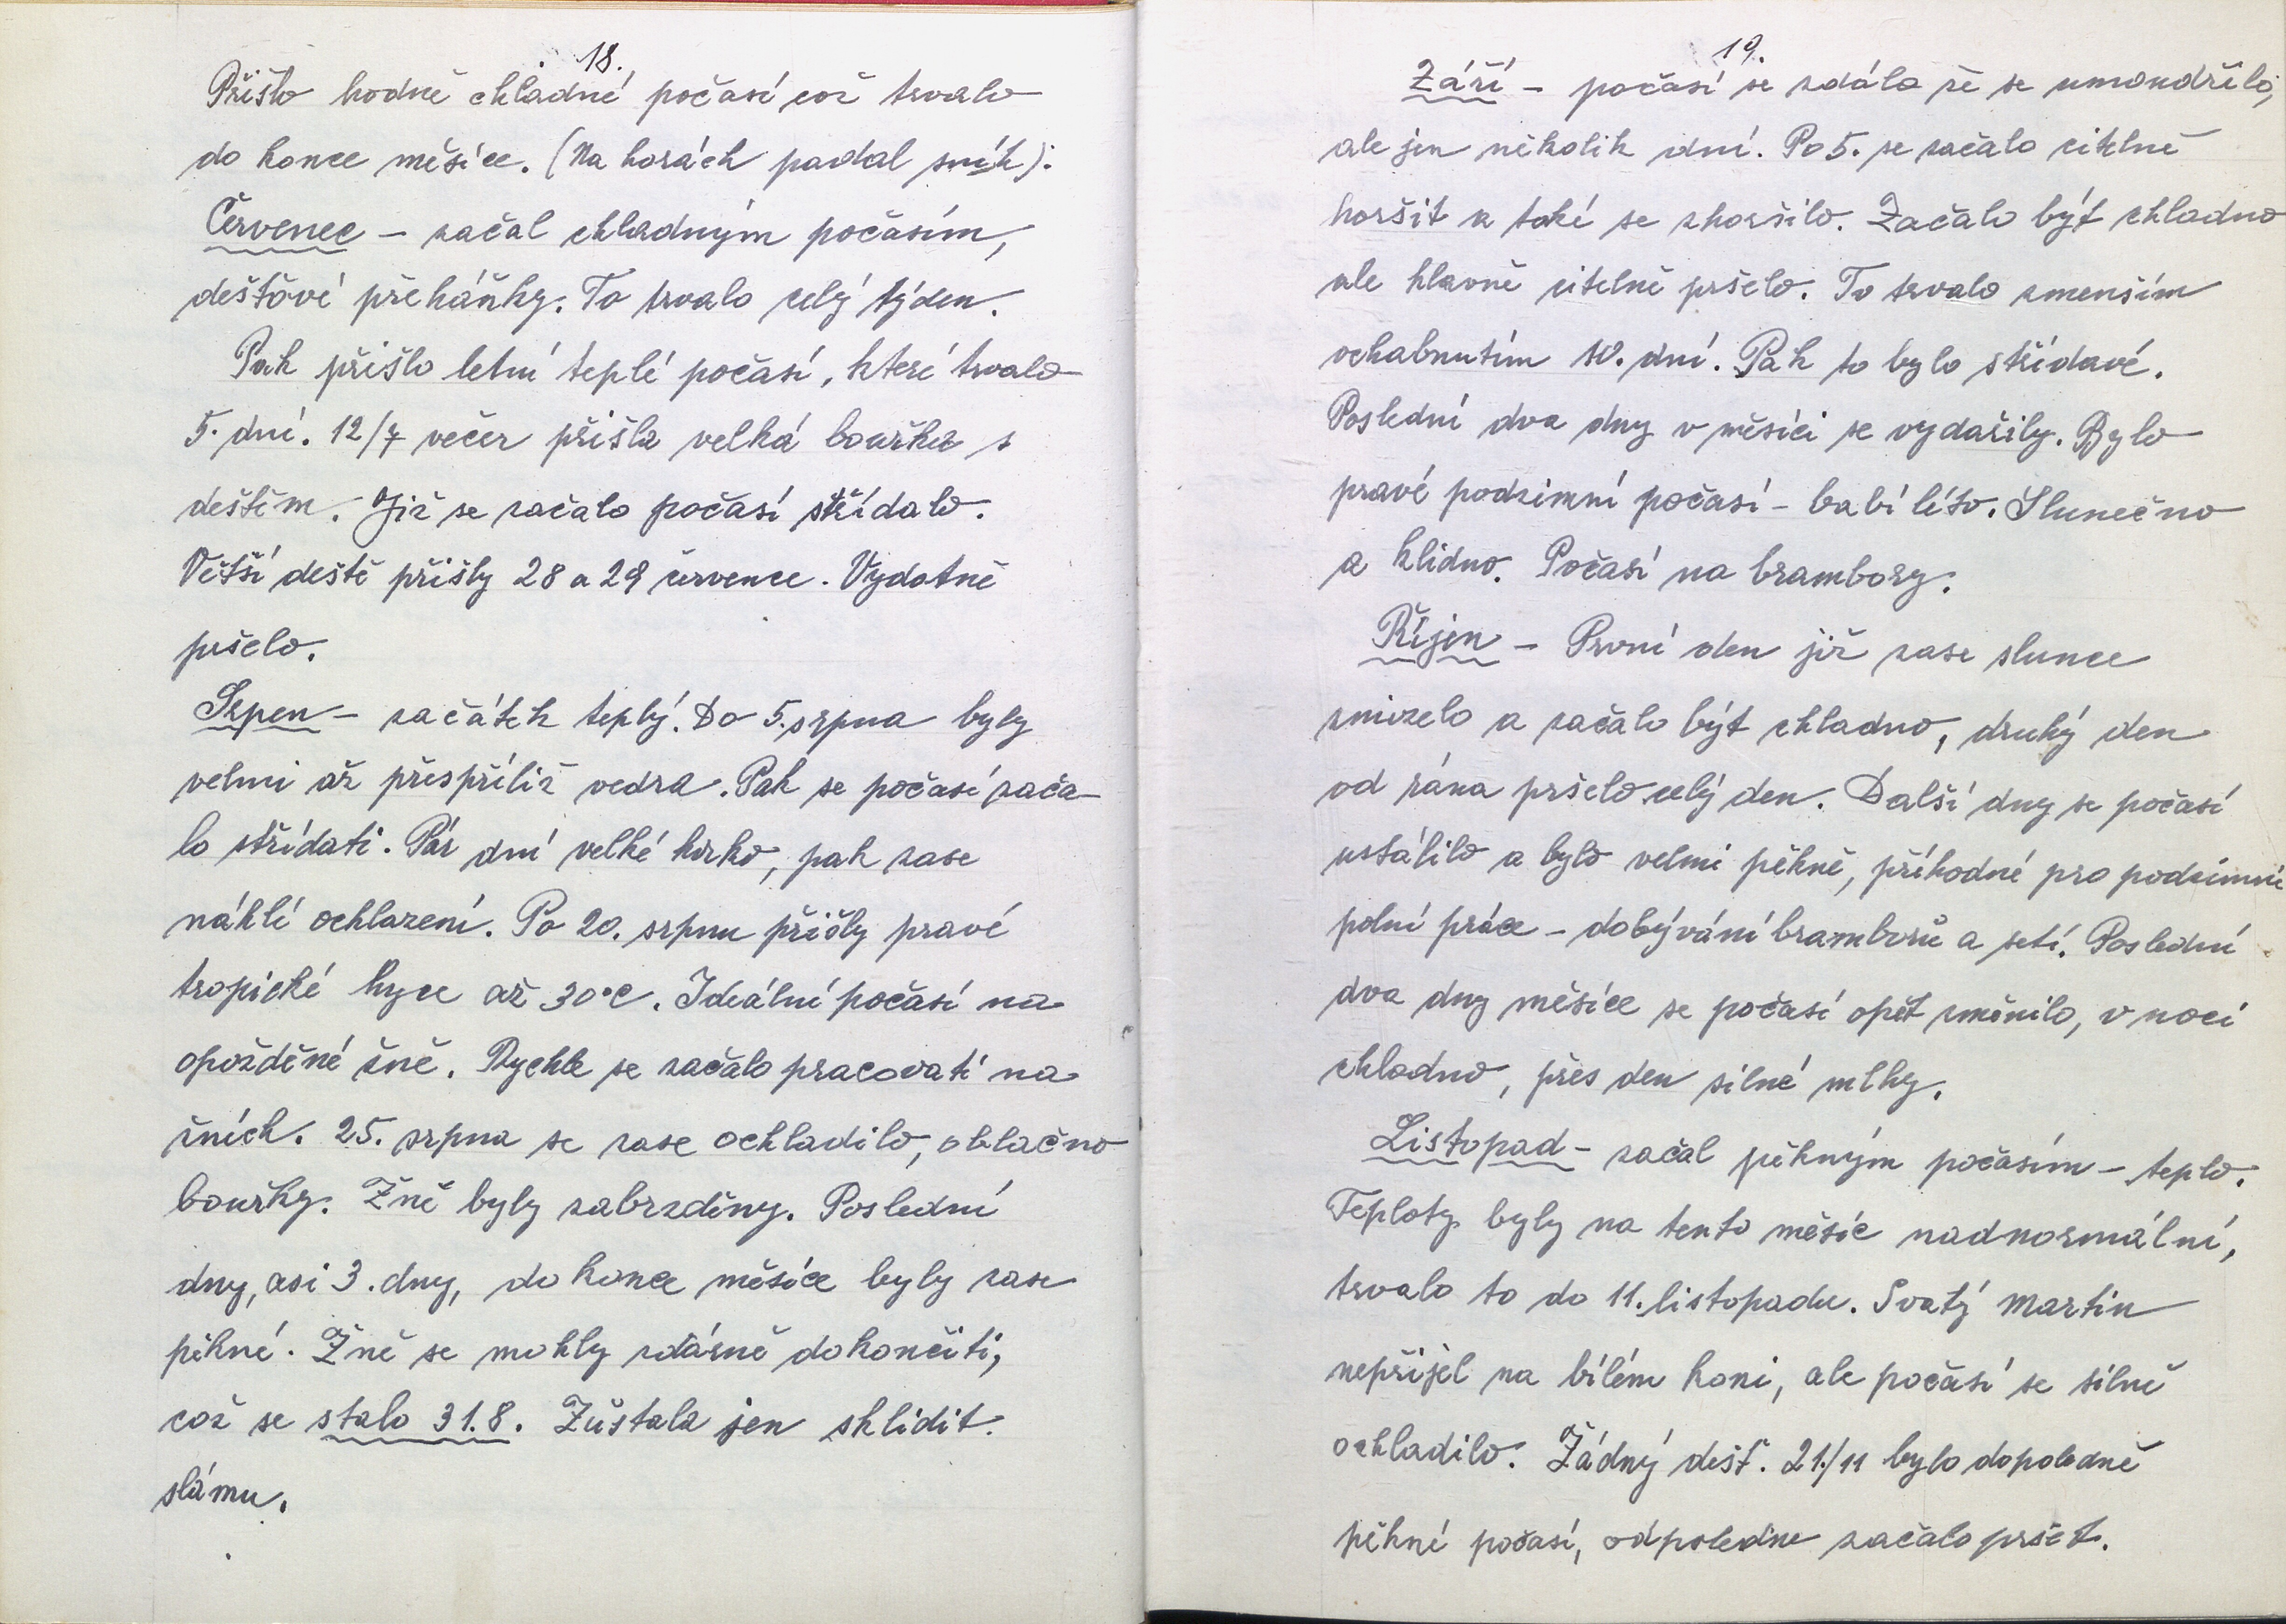 18.
Přišlo hodně chladné počasí což trvalo
do konce měsíce. (Na horách padal sníh).
Červenec – začal chladným počasím,
dešťové přeháňky. To trvalo celý týden.
Pak přišlo letní teplé počasí, které trvalo
5. dní. 12/7 večer přišla velká bouřka s
deštěm. Již se začalo počasí střídalo.
Větší deště přišly 28 a 29 července. Vydatně
pršelo.
Srpen – začátek teplý. Do 5. srpna byly
velmi až přespříliš vedra. Pak se počasí zača-
lo střídati. Pár dní velké horko, pak zase
náhlé ochlazení. Po 20. srpnu přišly pravé
tropické hyce až 30°C. Ideální počasí na
opožděné žně. Rychle se začalo pracovati na
žních. 25. srpna se zase ochladilo, oblačno
bouřky. Žně byly zabrzděny. Poslední
dny, asi 3. dny, do konce měsíce byly zase
pěkné. Žně se mohly zdárně dokončiti,
což se stalo 31.8. Zůstala jen sklidit
slámu.
19.
Září – počasí se zdálo že se umoudřilo,
ale jen několik dní. Po 5. se začalo citelně
horšit a také se zhoršilo. Začalo být chladno
ale hlavně citelně pršelo. To trvalo zmenším
ochabnutím 10. dní. Pak to bylo střídavé.
Poslední dva dny v měsíci se vydařily. Bylo
pravé podzimní počasí – babí léto. Slunečno
a klidno. Počasí na brambory.
Říjen – První den již zase slunce
zmizelo a začalo být chladno, druhý den
od rána pršelo celý den. Další dny se počasí
ustálilo a bylo velmi pěkně, příhodné pro podzimní
polní práce – dobývání bramborů a setí. Poslední
dva dny měsíce se počasí opět změnilo, v noci
chladno, přes den silné mlhy.
Listopad – začal pěkným počasím – teplo.
Teploty byly na tento měsíc nadnormální,
trvalo to do 11. listopadu. Svatý Martin
nepřijel na bílém koni, ale počasí se silně
ochladilo. Žádný déšť. 21/11 bylo dopoledně
pěkné počasí, odpoledne začalo pršet.